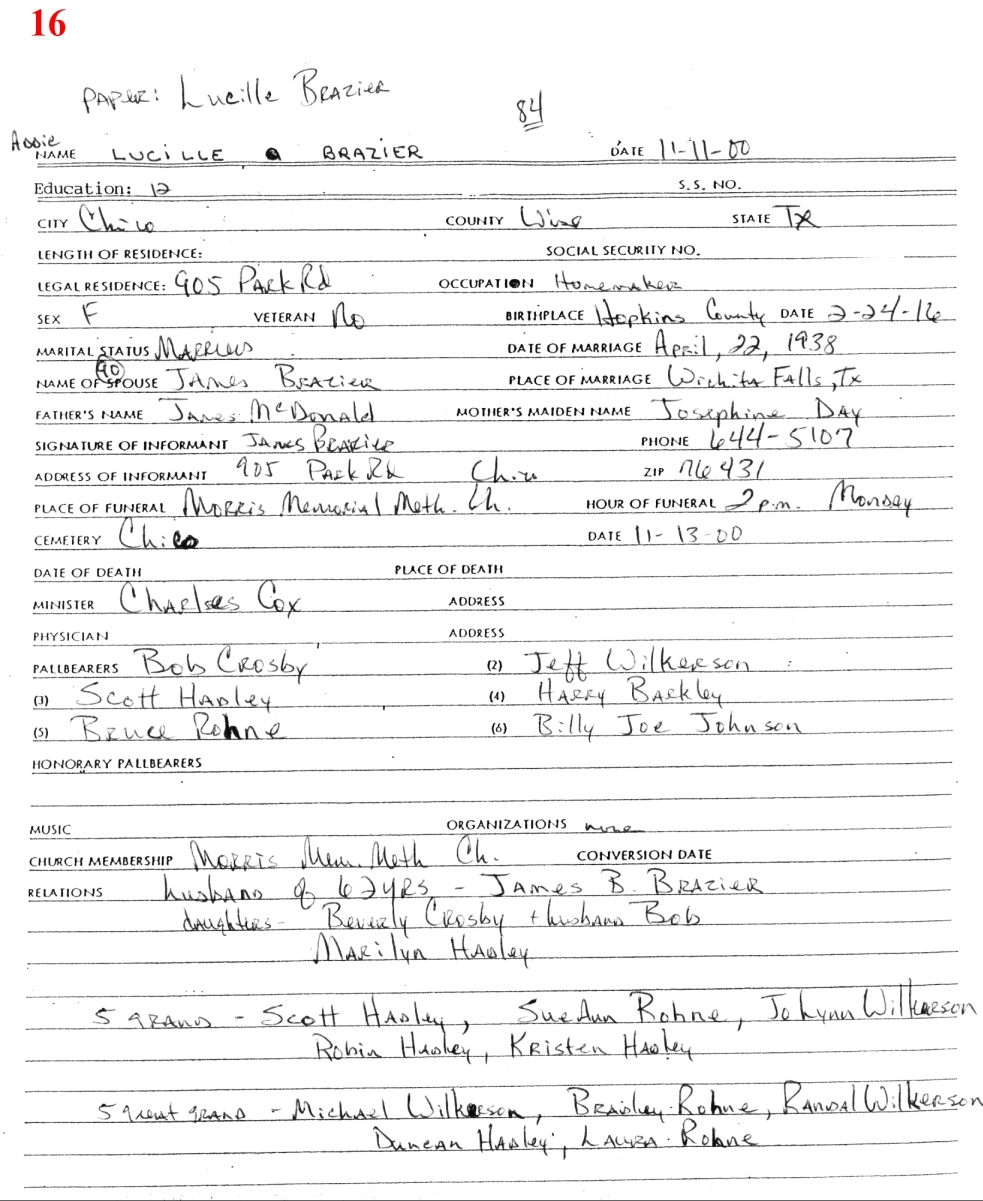 16
PAPER: Lucille BRAZIER
84
Addie
NAME LUCILLE BRAZIER DATE 11-11-00
Education: 12 S.S. NO.
CITY Chico COUNTY Wise STATE TX
LENGTH OF RESIDENCE: SOCIAL SECURITY NO.
LEGAL RESIDENCE: 905 Park Rd OCCUPATION Homemaker
SEX F VETERAN No BIRTHPLACE Hopkins County DATE 2-24-16
MARITAL STATUS MARRIED DATE OF MARRIAGE April, 22, 1938
90
NAME OF SPOUSE JAMES BRAZIER PLACE OF MARRIAGE Wichita Falls, Tx
FATHER'S NAME James McDonald MOTHER'S MAIDEN NAME Josephine DAY
SIGNATURE OF INFORMANT JAMES BRAZIER PHONE 644-5107
ADDRESS OF INFORMANT 905 Park Rd Chico ZIP 76431
PLACE OF FUNERAL Morris Memorial Meth. Ch. HOUR OF FUNERAL 2 p.m. Monday
CEMETERY Chico DATE 11-13-00
DATE OF DEATH PLACE OF DEATH
MINISTER Charles Cox ADDRESS
PHYSICIAN ADDRESS
PALLBEARERS Bob Crosby (2) Jeff Wilkerson
(3) Scott Hadley (4) Harry Backley
(5) Bruce Rohne (6) Billy Joe Johnson
HONORARY PALLBEARERS
MUSIC ORGANIZATIONS none
CHURCH MEMBERSHIP Morris Mem. Meth Ch. CONVERSION DATE
RELATIONS husband of 62 YRS - JAMES B. BRAZIER
daughters - Beverly Crosby + husband Bob
Marilyn Hadley
5 grand - Scott Hadley, SueAnn Rohne, JoLynn Wilkerson
Robin Hadley, Kristen Hadley
5 great grand - Michael Wilkerson, Bradley Rohne, Randal Wilkerson
Duncan Hadley, Laura Rohne